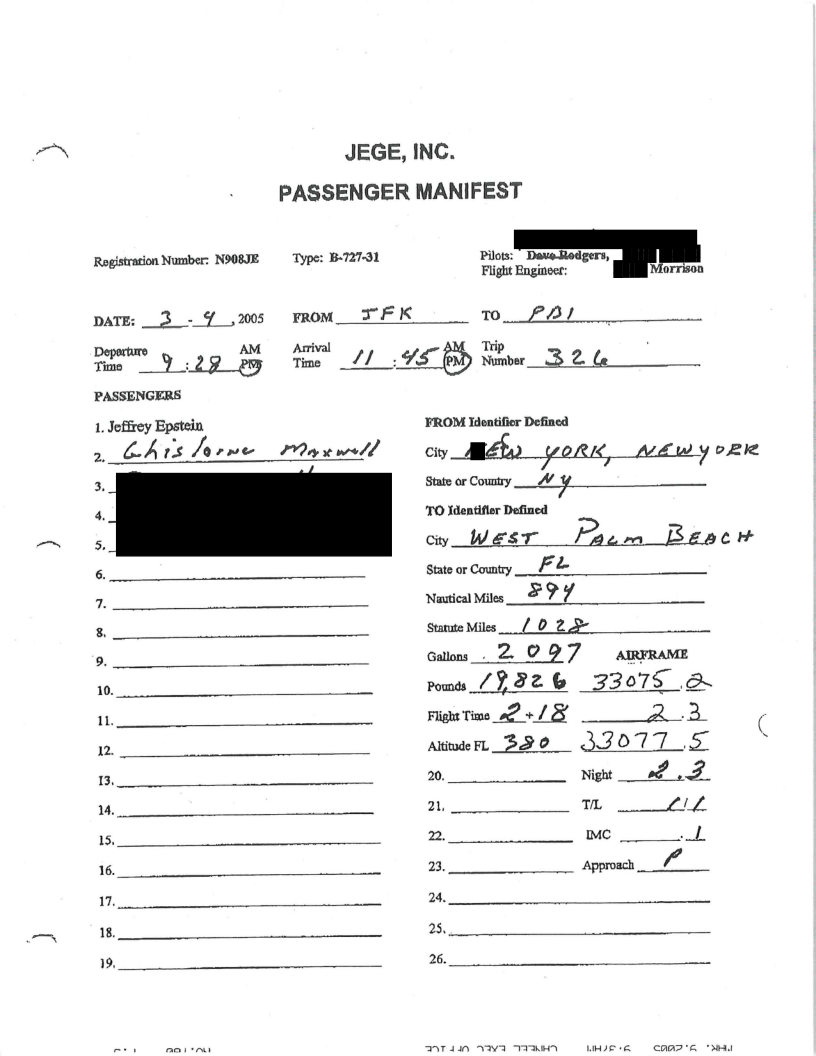 JEGE, INC.
PASSENGER MANIFEST
Registration Number: N908JE Type: B-727-31 Pilots: Dave Rodgers,
Flight Engineer: Morrison
DATE: 3 - 4 , 2005 FROM JFK TO PBI
Departure Time 9 : 28 AM PM Arrival Time 11 : 45 AM PM Trip Number 326
PASSENGERS
1. Jeffrey Epstein
2. Ghislaine Maxwell
3.
4.
5.
6.
7.
8.
9.
10.
11.
12.
13.
14.
15.
16.
17.
18.
19.
FROM Identifier Defined
City NEW YORK, NEW YORK
State or Country NY
TO Identifier Defined
City WEST PALM BEACH
State or Country FL
Nautical Miles 894
Statute Miles 1028
Gallons 2097 AIRFRAME
Pounds 19,826 33075.2
Flight Time 2+18 2.3
Altitude FL 380 33077.5
20. Night 2.3
21. T/L 1/1
22. IMC .1
23. Approach P
24.
25.
26.